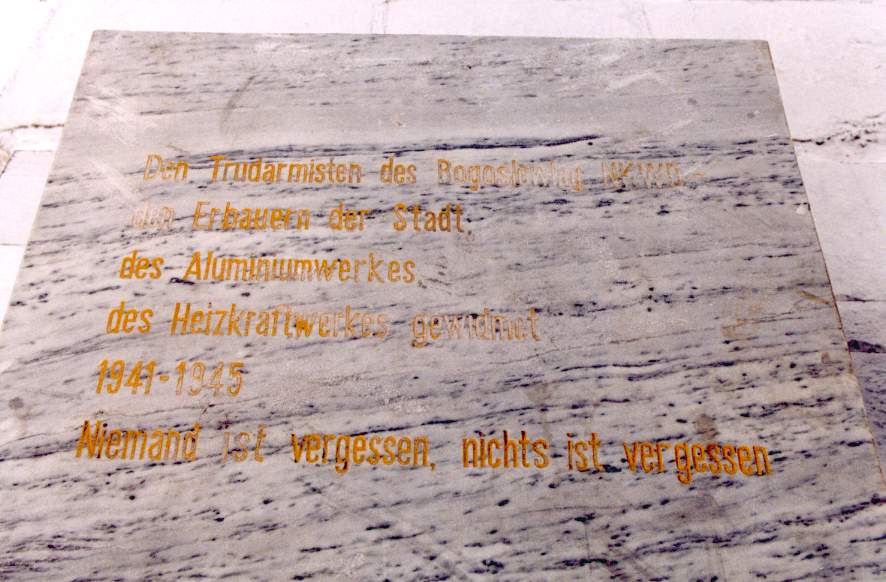 Den Trudarmisten des Bogoslowlag NKWD -
den Erbauern der Stadt,
des Aluminiumwerkes,
des Heizkraftwerkes gewidmet
1941-1945
Niemand ist vergessen, nichts ist vergessen